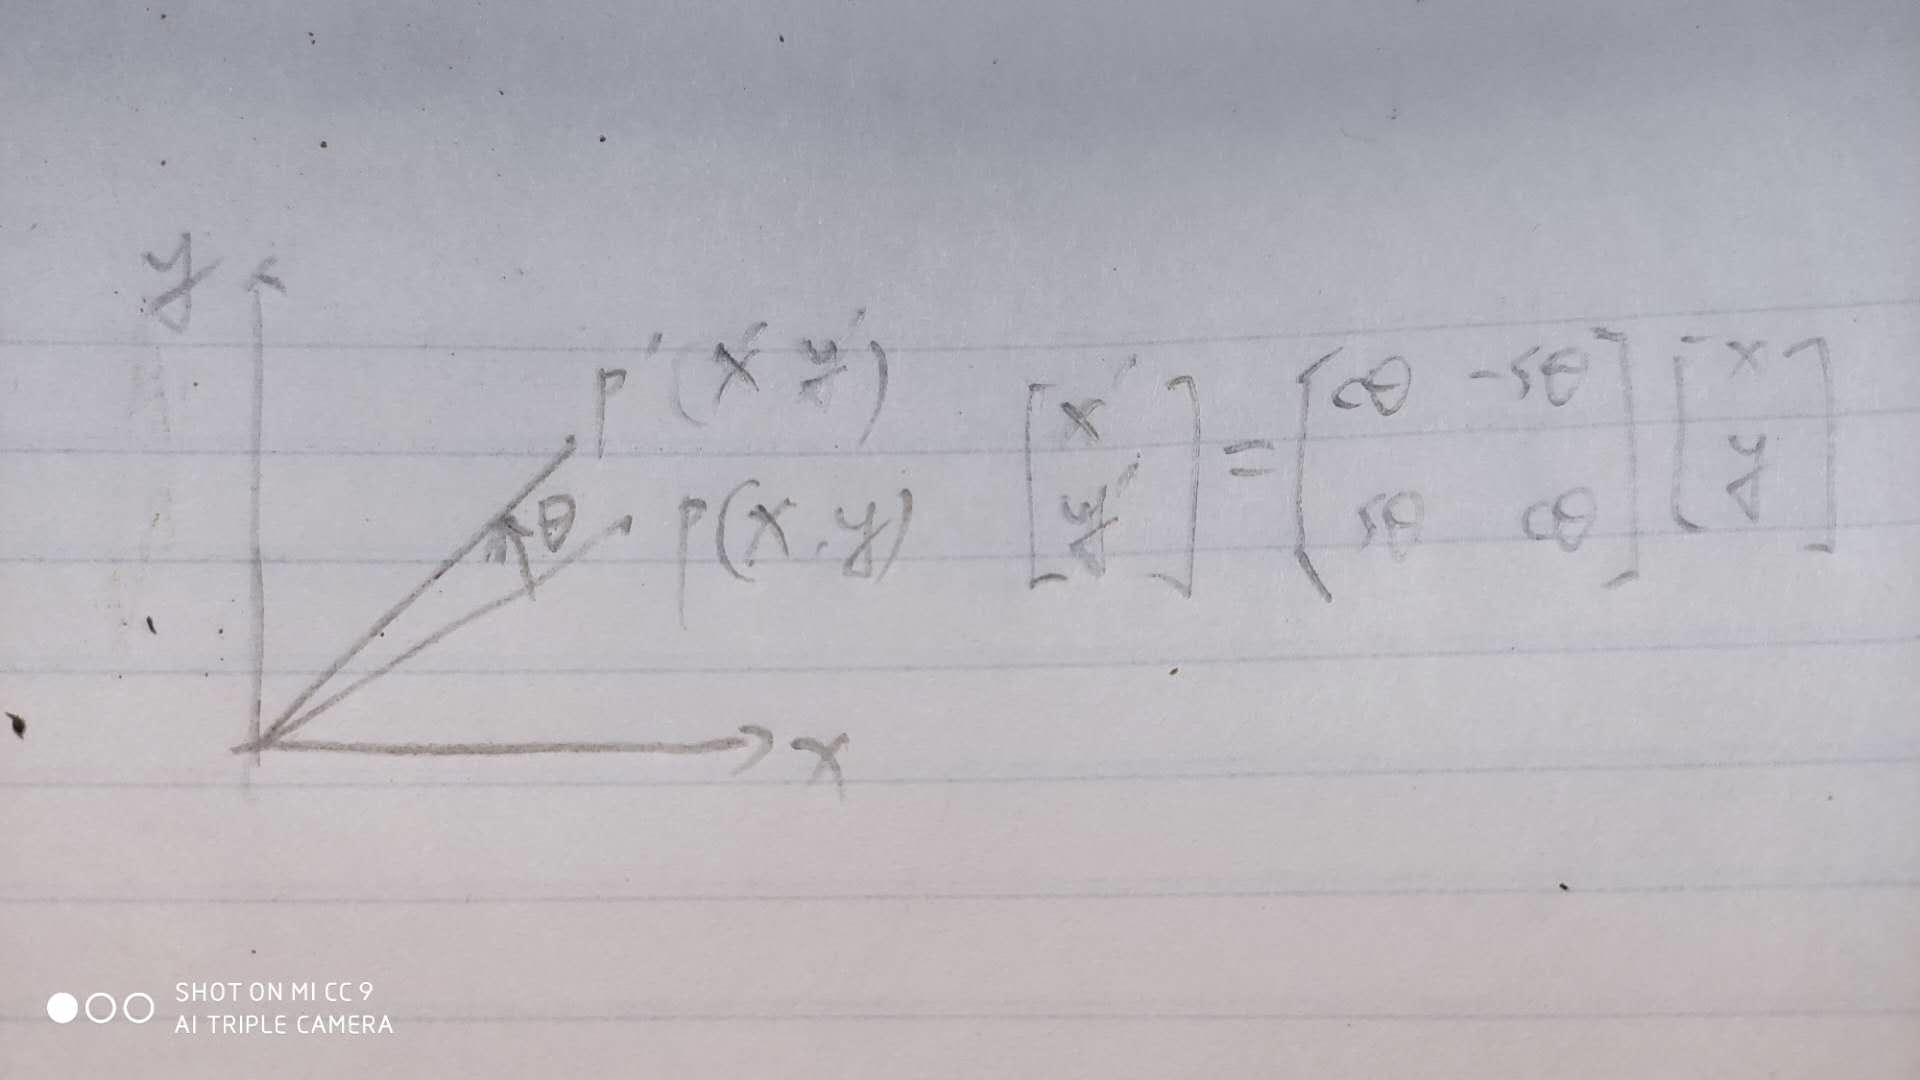 y
P'(x' y')
θ
P(x,y)
x
[x' y'] = [cθ -sθ sθ cθ] [x y]
SHOT ON MI CC 9
AI TRIPLE CAMERA